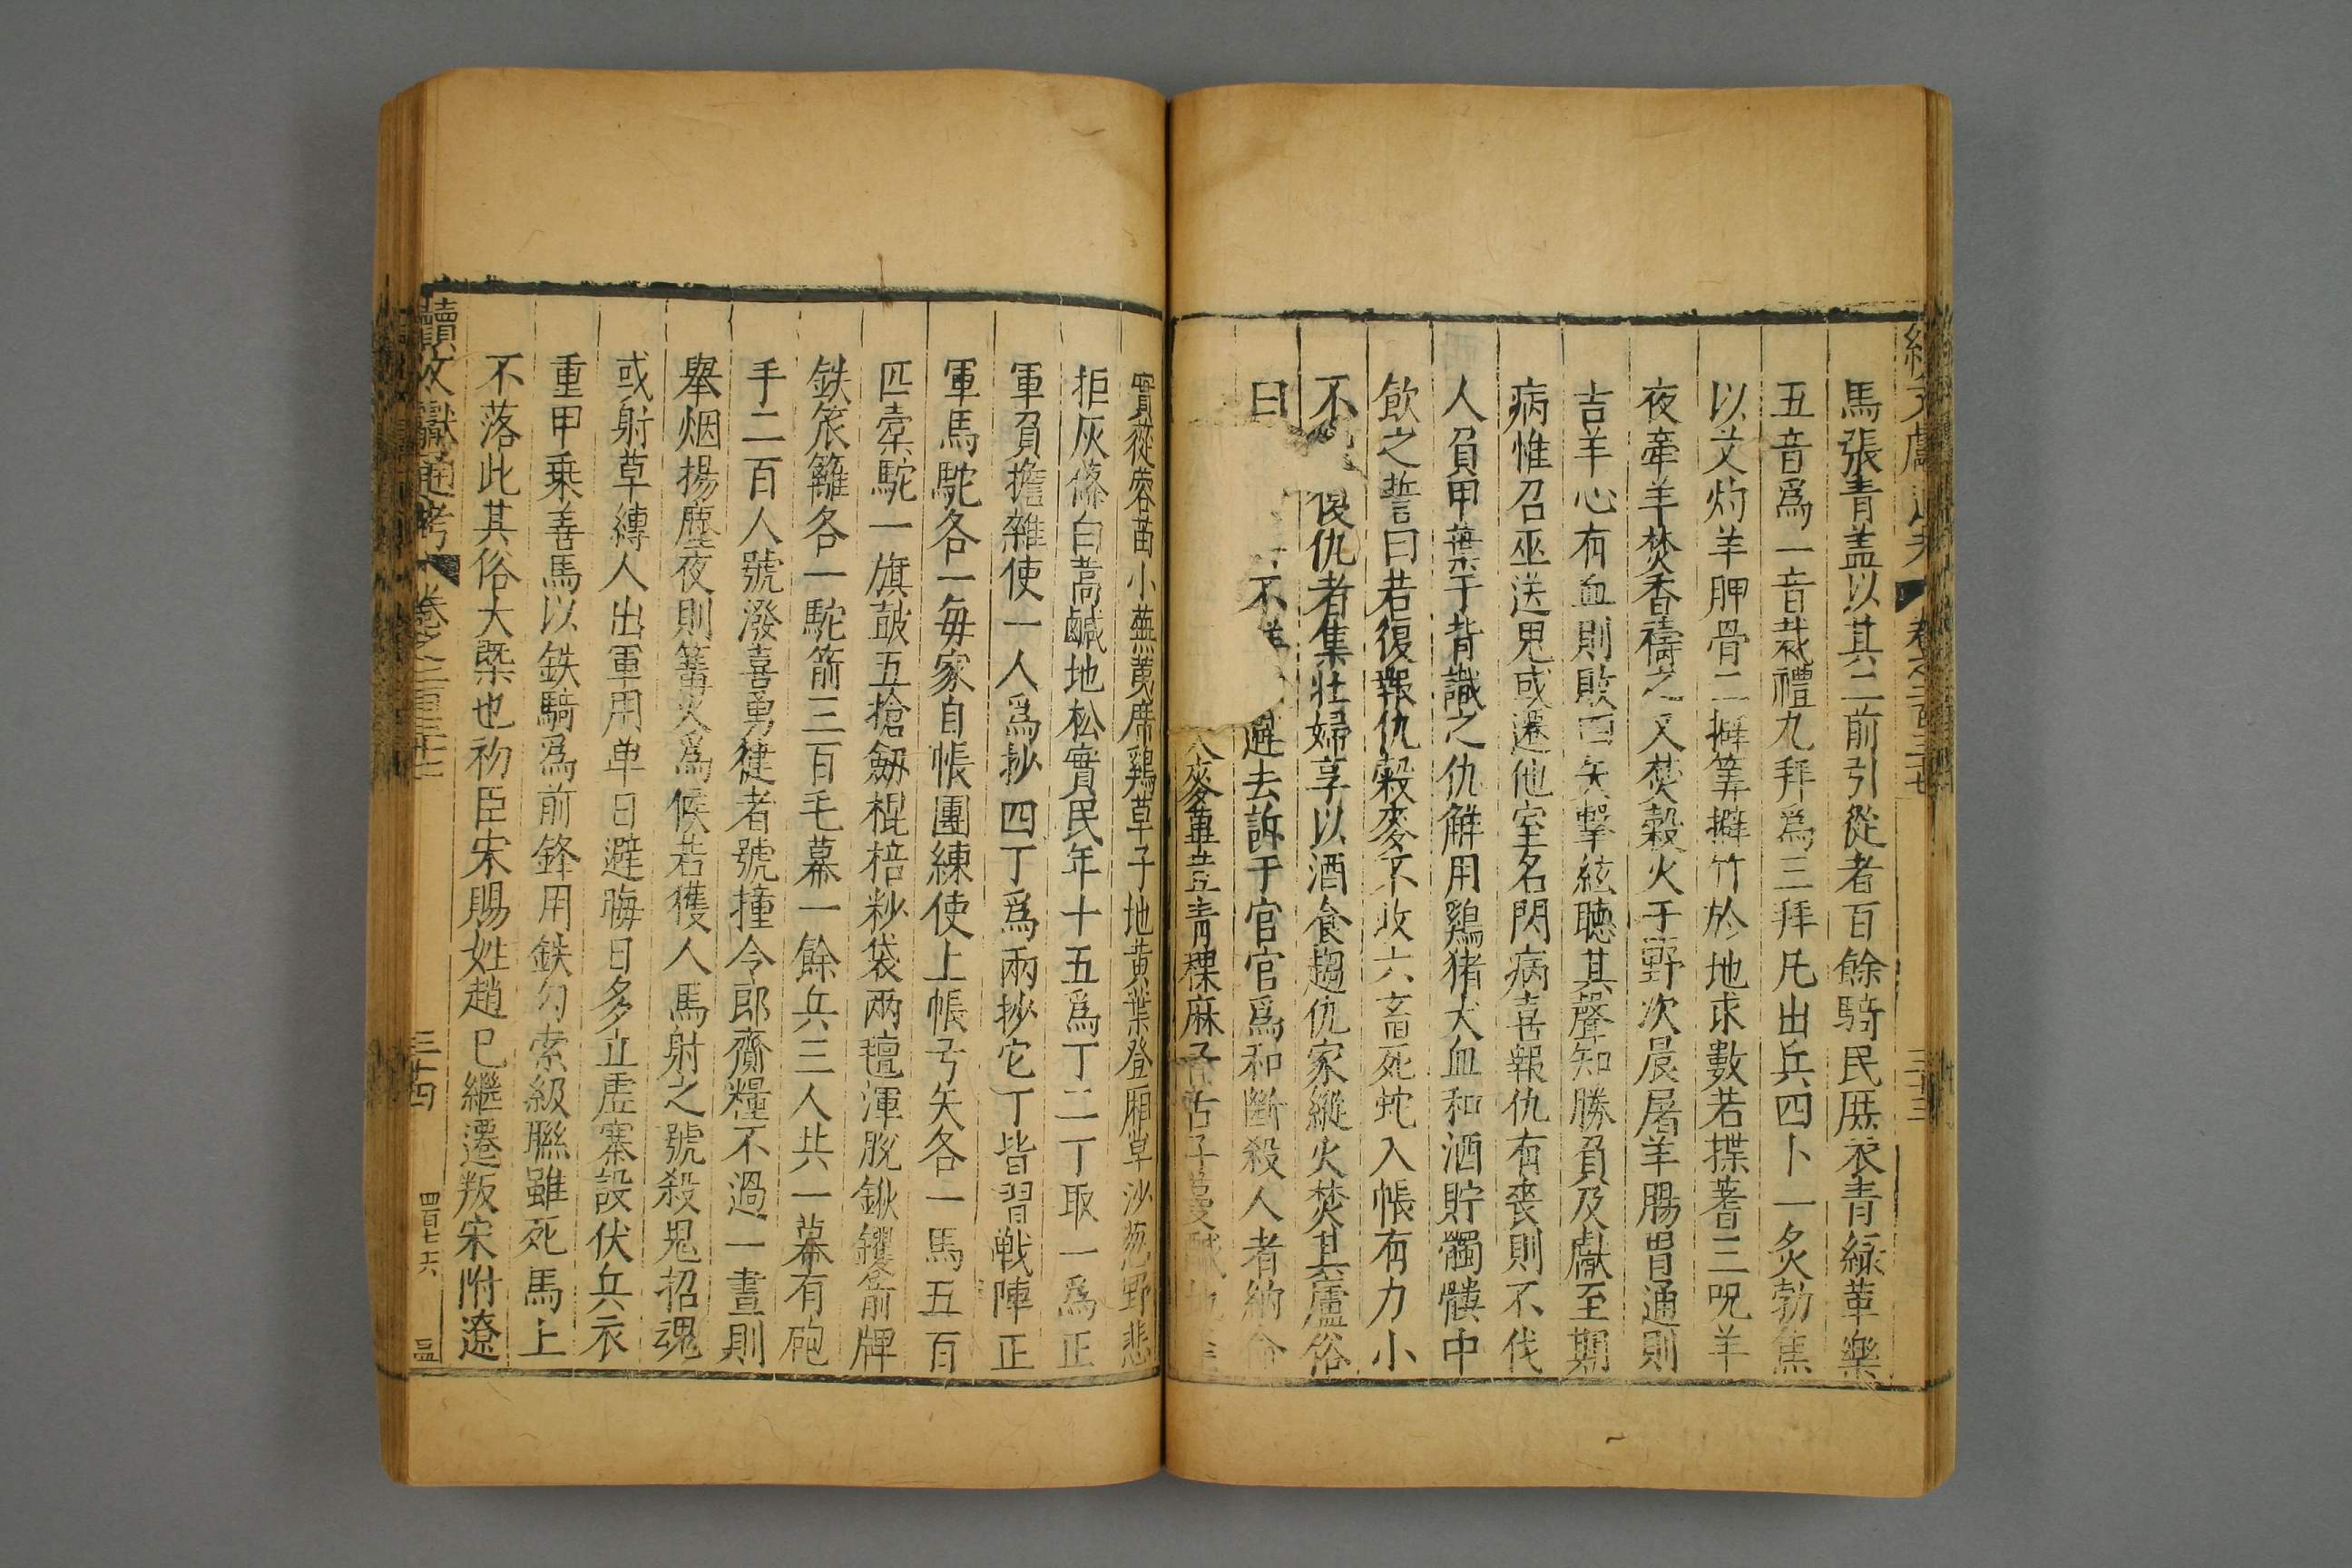 馬張青盖以其二前引從者百餘騎民庶衣青綠革樂
五音爲一音裁禮九拜爲三拜凡出兵四卜一炙勃焦
以艾灼羊胛骨二擗筭擗竹於地求數若揲蓍三呪羊
夜牽羊焚香禱之又焚穀火于野次晨屠羊腸胃通則
吉羊心有血則敗四矢擊絃聽其聲知勝負及敵至期
病惟召巫送鬼或遷他室名閃病喜報仇有喪則不伐
人負甲葉于背識之仇解用鷄猪犬血和酒貯髑髏中
飲之誓曰若復報仇穀麥不收六畜死蛇入帳有力小
不 復仇者集壯婦享以酒食趨仇家縱火焚其廬俗
曰 不 避去訴于官官爲和斷殺人者納命
麥蓽荳青稞麻子古子蔓鹹地
實蓯蓉苗小蕪荑席鷄草子地黃葉登廂草沙葱野悲
拒灰蓧白蒿鹹地松實民年十五爲丁二丁取一爲正
軍負擔雜使一人爲抄四丁爲兩抄它丁皆習戰陣正
軍馬駝各一每家自帳團練使上帳弓矢各一馬五百
匹橐駝一旗鼓五搶劒棍棓粆袋两氊渾脫鍬钁箭牌
鉄笊籬各一駝箭三百毛幕一餘兵三人共一幕有砲
手二百人號潑喜勇健者號撞令郎齎糧不過一晝則
舉烟揚塵夜則篝火爲候若獲人馬射之號殺鬼招魂
或射草縛人出軍用单日避晦日多立虛寨設伏兵衣
重甲乗善馬以鉄騎爲前鋒用鉄勾索絞聯雖死馬上
不落此其俗大槩也初臣宋賜姓趙已繼遷叛宋附遼
續文獻通考 卷之二百三十七 三十四 四百七十六